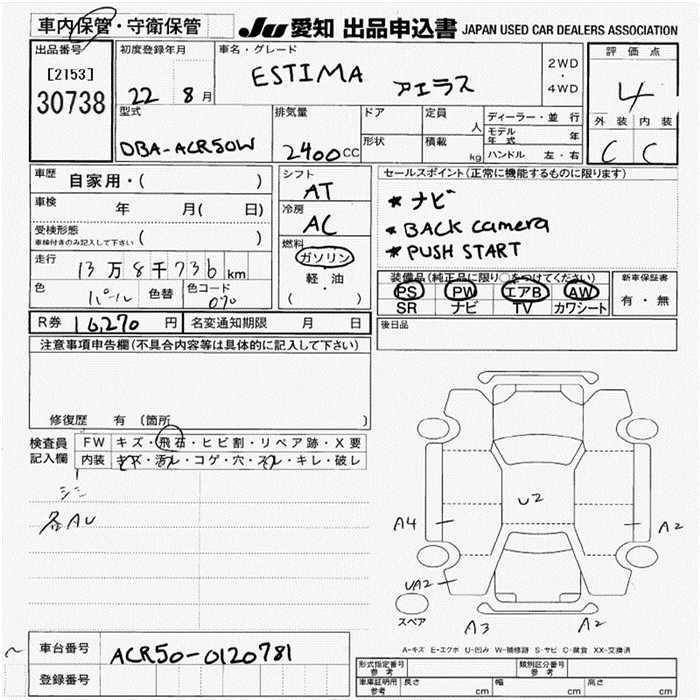 車内保管・守衛保管
JU 愛知 出品申込書 JAPAN USED CAR DEALERS ASSOCIATION
出品番号
[2153]
30738
初度登録年月
22 8月
車名・グレード
ESTIMA アエラス
2WD
・
4WD
評価点
4
外装 内装
C C
型式
DBA-ACR50W
排気量
2400cc
ドア
形状
定員 人
積載 kg
ディーラー・並行
モデル年式 年
ハンドル 左・右
車歴 自家用・( )
車検 年 月( 日)
受検形態
車検付きのみ記入して下さい ( )
走行 13万8千736km
色 パール 色替 色コード 070
シフト
AT
冷房
AC
燃料
ガソリン
・
軽・油
( )
セールスポイント(正常に機能するものに限ります)
* ナビ
* BACK camera
* PUSH START
装備品(純正品に限り○をつけてください)
PS PW エアB AW
SR ナビ TV カワシート
新車保証書
有・無
R券 16,270円 名変通知期限 月 日
後日品
注意事項申告欄(不具合内容等は具体的に記入して下さい)
修復歴 有 (箇所 )
検査員記入欄
FW キズ・飛石・ヒビ割・リペア跡・X要
内装 キズ・汚レ・コゲ・穴・スレ・キレ・破レ
シミ
各AU
U2
A4
A2
UA2
スペア
A3
A2
A-キズ E-エクボ U-凹み W-補修跡 S-サビ C-腐食 XX-交換済
車台番号 ACR50-0120781
登録番号
型式指定番号 参考
類別区分番号 参考
車庫証明用 参考 長さ cm 幅 cm 高さ cm